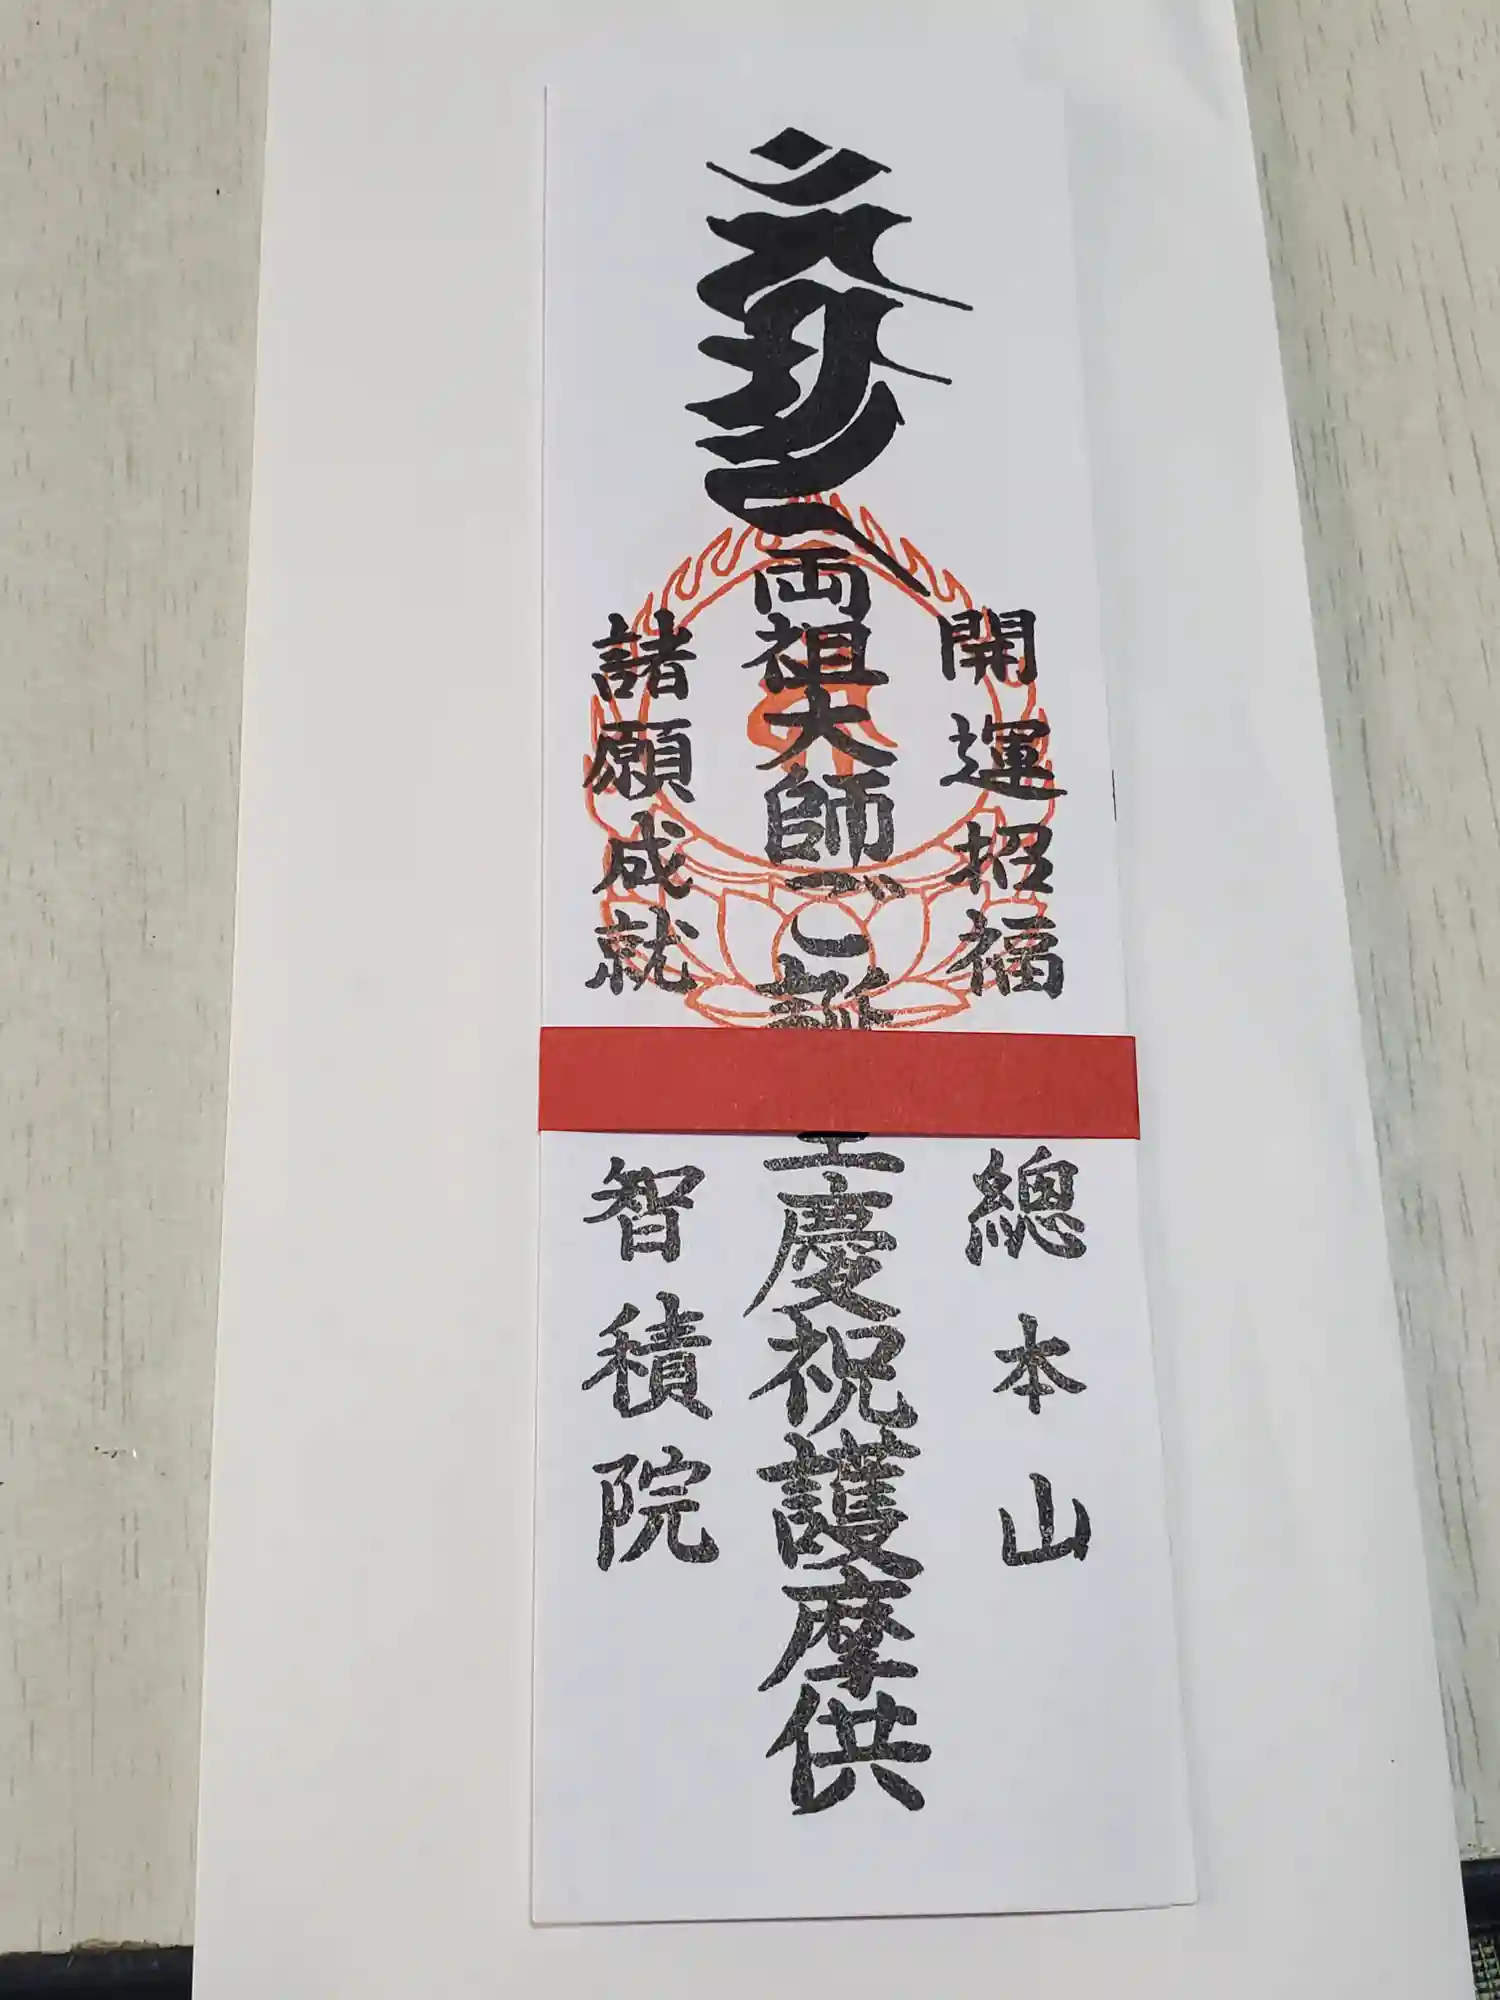 開運招福
両祖大師ご
慶祝護摩供
諸願成就
總本山
智積院